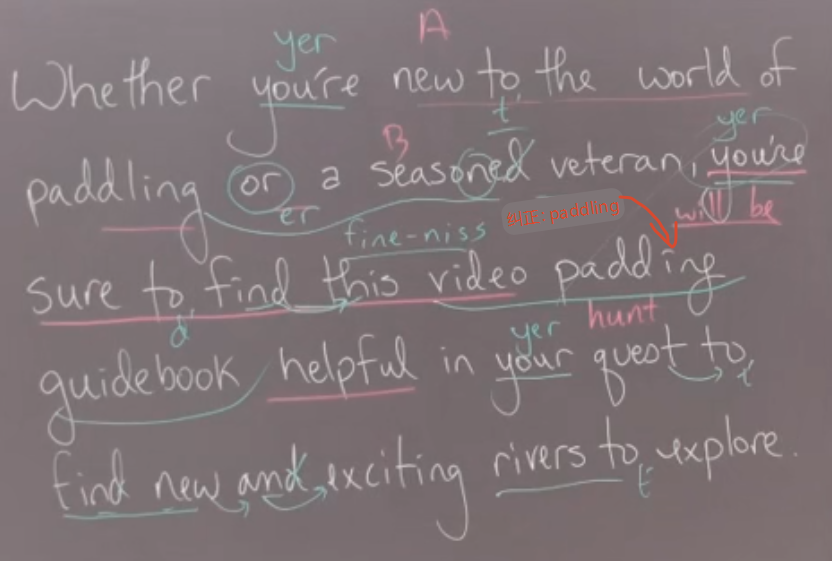 yer A
Whether you're new to the world of
t
B yer
paddling or a seasoned veteran, you're
er will be
paddling
fine-niss
sure to find this video padding
d
yer hunt
guidebook helpful in your quest to
t
find new and exciting rivers to explore.
t